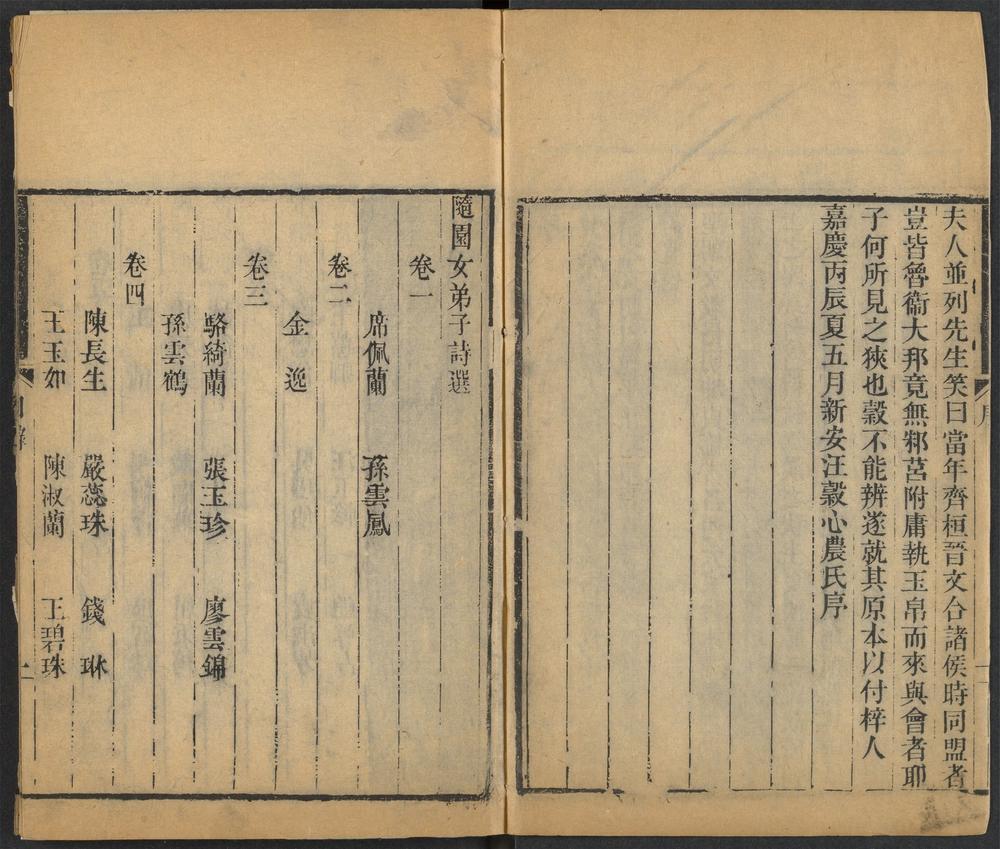 夫人並列先生笑曰當年齊桓晉文合諸侯時同盟者
豈皆魯衞大邦竟無邾莒附庸執玉帛而來與會者耶
子何所見之狹也穀不能辨遂就其原本以付梓人
嘉慶丙辰夏五月新安汪穀心農氏序
隨園女弟子詩選
卷一
席佩蘭 孫雲鳳
卷二
金逸
卷三
駱綺蘭 張玉珍 廖雲錦
孫雲鶴
卷四
陳長生 嚴蕊珠 錢琳
王玉如 陳淑蘭 王碧珠